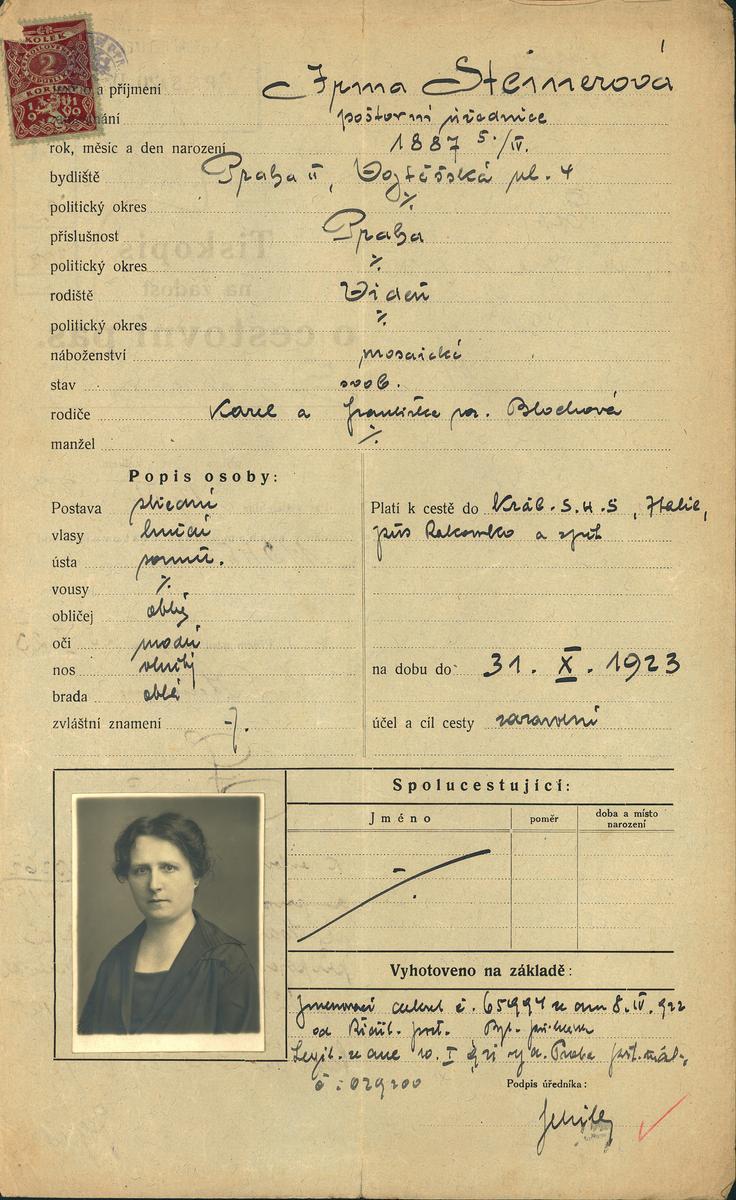 KOLEK
2
KORUNY
jméno a příjmení Irma Steinerová
zaměstnání poštovní úřednice
rok, měsíc a den narození 1887 5./IV.
bydliště Praha II, Vojtěšská ul. 4
politický okres ·/.
příslušnost Praha
politický okres ·/.
rodiště Vídeň
politický okres ·/.
náboženství mosaické
stav svob.
rodiče Karel a Františka roz. Blochová
manžel ·/.
Popis osoby:
Postava střední
vlasy hnědé
ústa souměr.
vousy ·/.
obličej oblý
oči modré
nos
brada oblá
zvláštní znamení -/.
Platí k cestě do Král. S.H.S, Italie,
přes Rakousko a zpět
na dobu do 31. X. 1923
účel a cíl cesty zotavení
Spolucestující:
Jméno
poměr
doba a místo
narození
Vyhotoveno na základě:
Jmenovací dekret č. 65994 ze dne 8. IV. 922
od Ředit. pošt.
Legit. ze dne 10. I. Praha
č: 029200
Podpis úředníka: